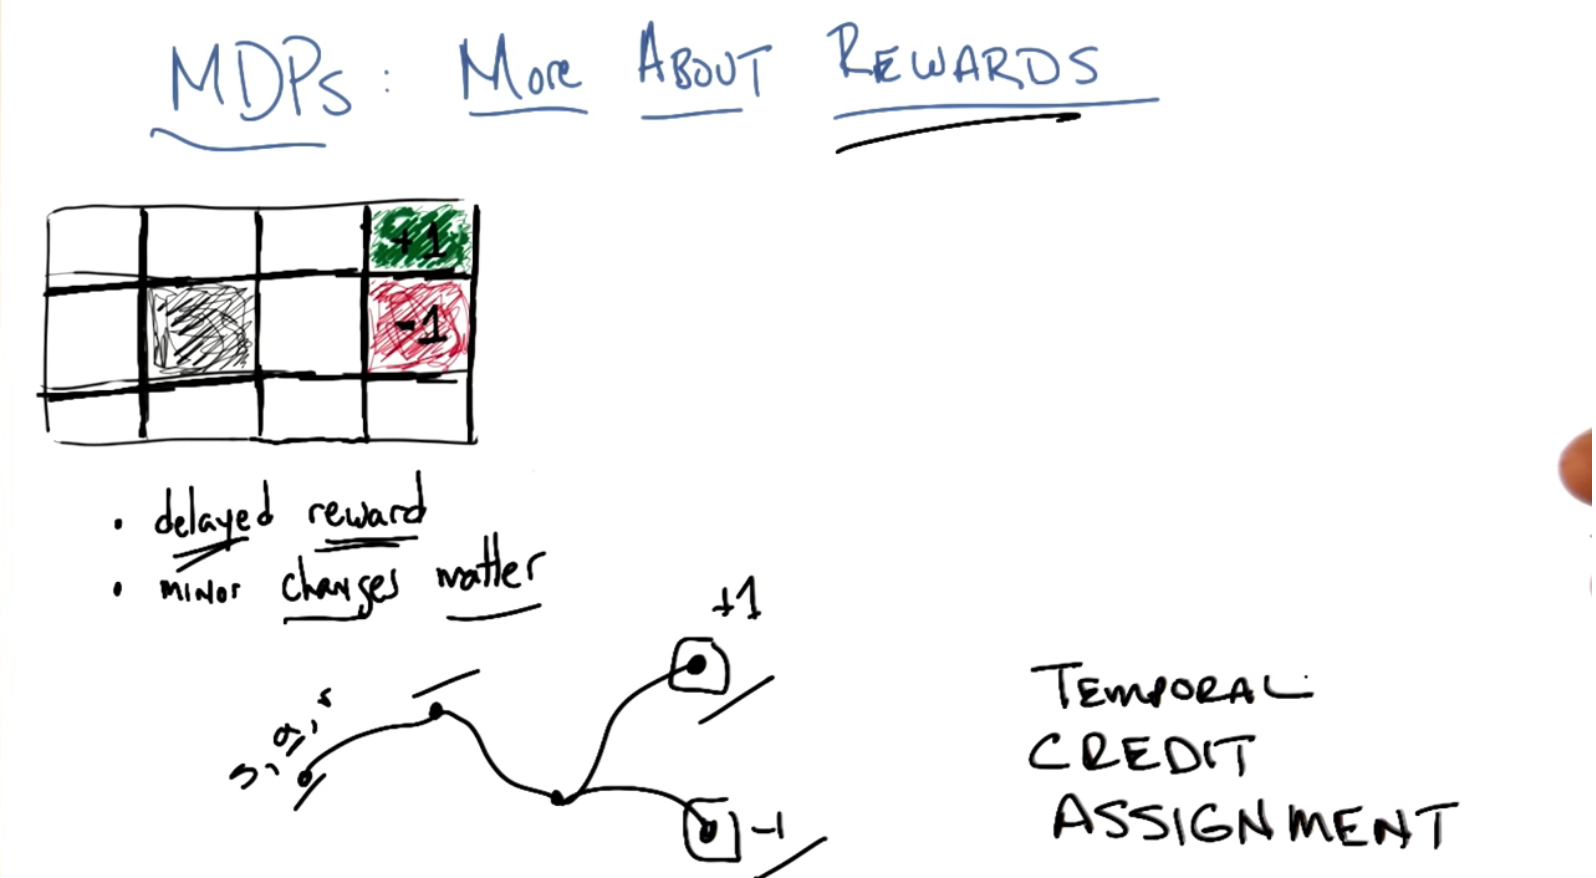 MDPs: More About Rewards
+1
-1
• delayed reward
• minor changes matter
+1
s, a, r
-1
TEMPORAL
CREDIT
ASSIGNMENT